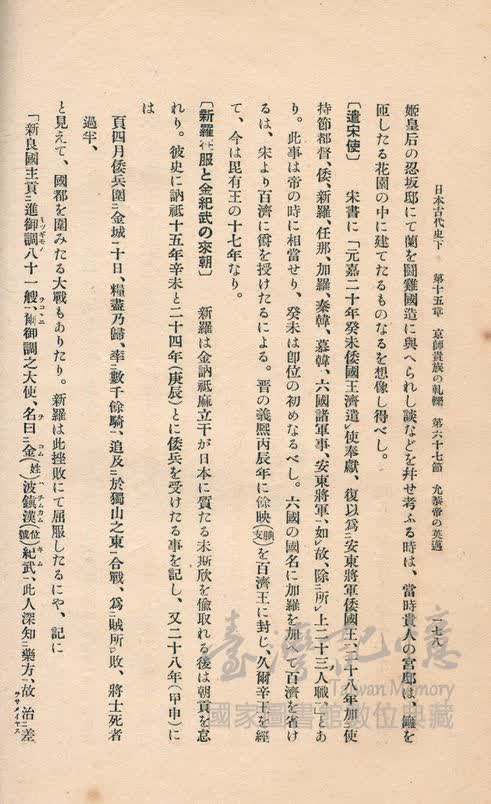 日本古代史下　第十五章　京師貴族の軋轢　第六十七節　允恭帝の英邁　一七八
姬皇后の忍坂邸にて蘭を鬪雞國造に與へられし談などを幷せ考ふる時は、當時貴人の宮邸は、籬を
匝したる花園の中に建てたるものなるを想像し得べし。
〔遣宋使〕　宋書に「元嘉二十年癸未倭國王濟遣レ使奉獻、復以爲二安東將軍倭國王一、二十八年加二使
持節都督、倭、新羅、任那、加羅、秦韓、慕韓、六國諸軍事、安東將軍、如レ故、除二所レ上二十三人職一」とあ
り。此事は帝の時に相當せり、癸未は卽位の初めなるべし。六國の國名に加羅を加へて百濟を省け
るは、宋より百濟に爵を授けたるによる。晋の義熙丙辰年に餘映(腆支)を百濟王に封し、久爾辛王を經
て、今は毘有王の十七年なり。
〔新羅服と金紀武の來朝〕　新羅は金訥祇麻立干が日本に質たる未斯欣を偸取れる後は朝貢を怠
れり。彼史に訥祇十五年辛未と二十四年(庚辰)とに倭兵を受けたる事を記し、又二十八年(甲申)に
は
頁四月倭兵圍二金城一十日、糧盡乃歸、率二數千餘騎一、追及二於獨山之東一合戰、爲二賊所レ敗、將士死者
過半、
と見えて、國都を圍みたる大戰もありたり。新羅は此挫敗にて屈服したるにや、記に
「新良國主貢二進御調八十一艘、爾御調之大使、名曰二金(姓)波鎭漢(位號)紀武一、此人深知二藥方一、故治二差
ミツギモノ
コム
ハチムカム
キム
臺灣記憶
Taiwan Memory
國家圖書館數位典藏